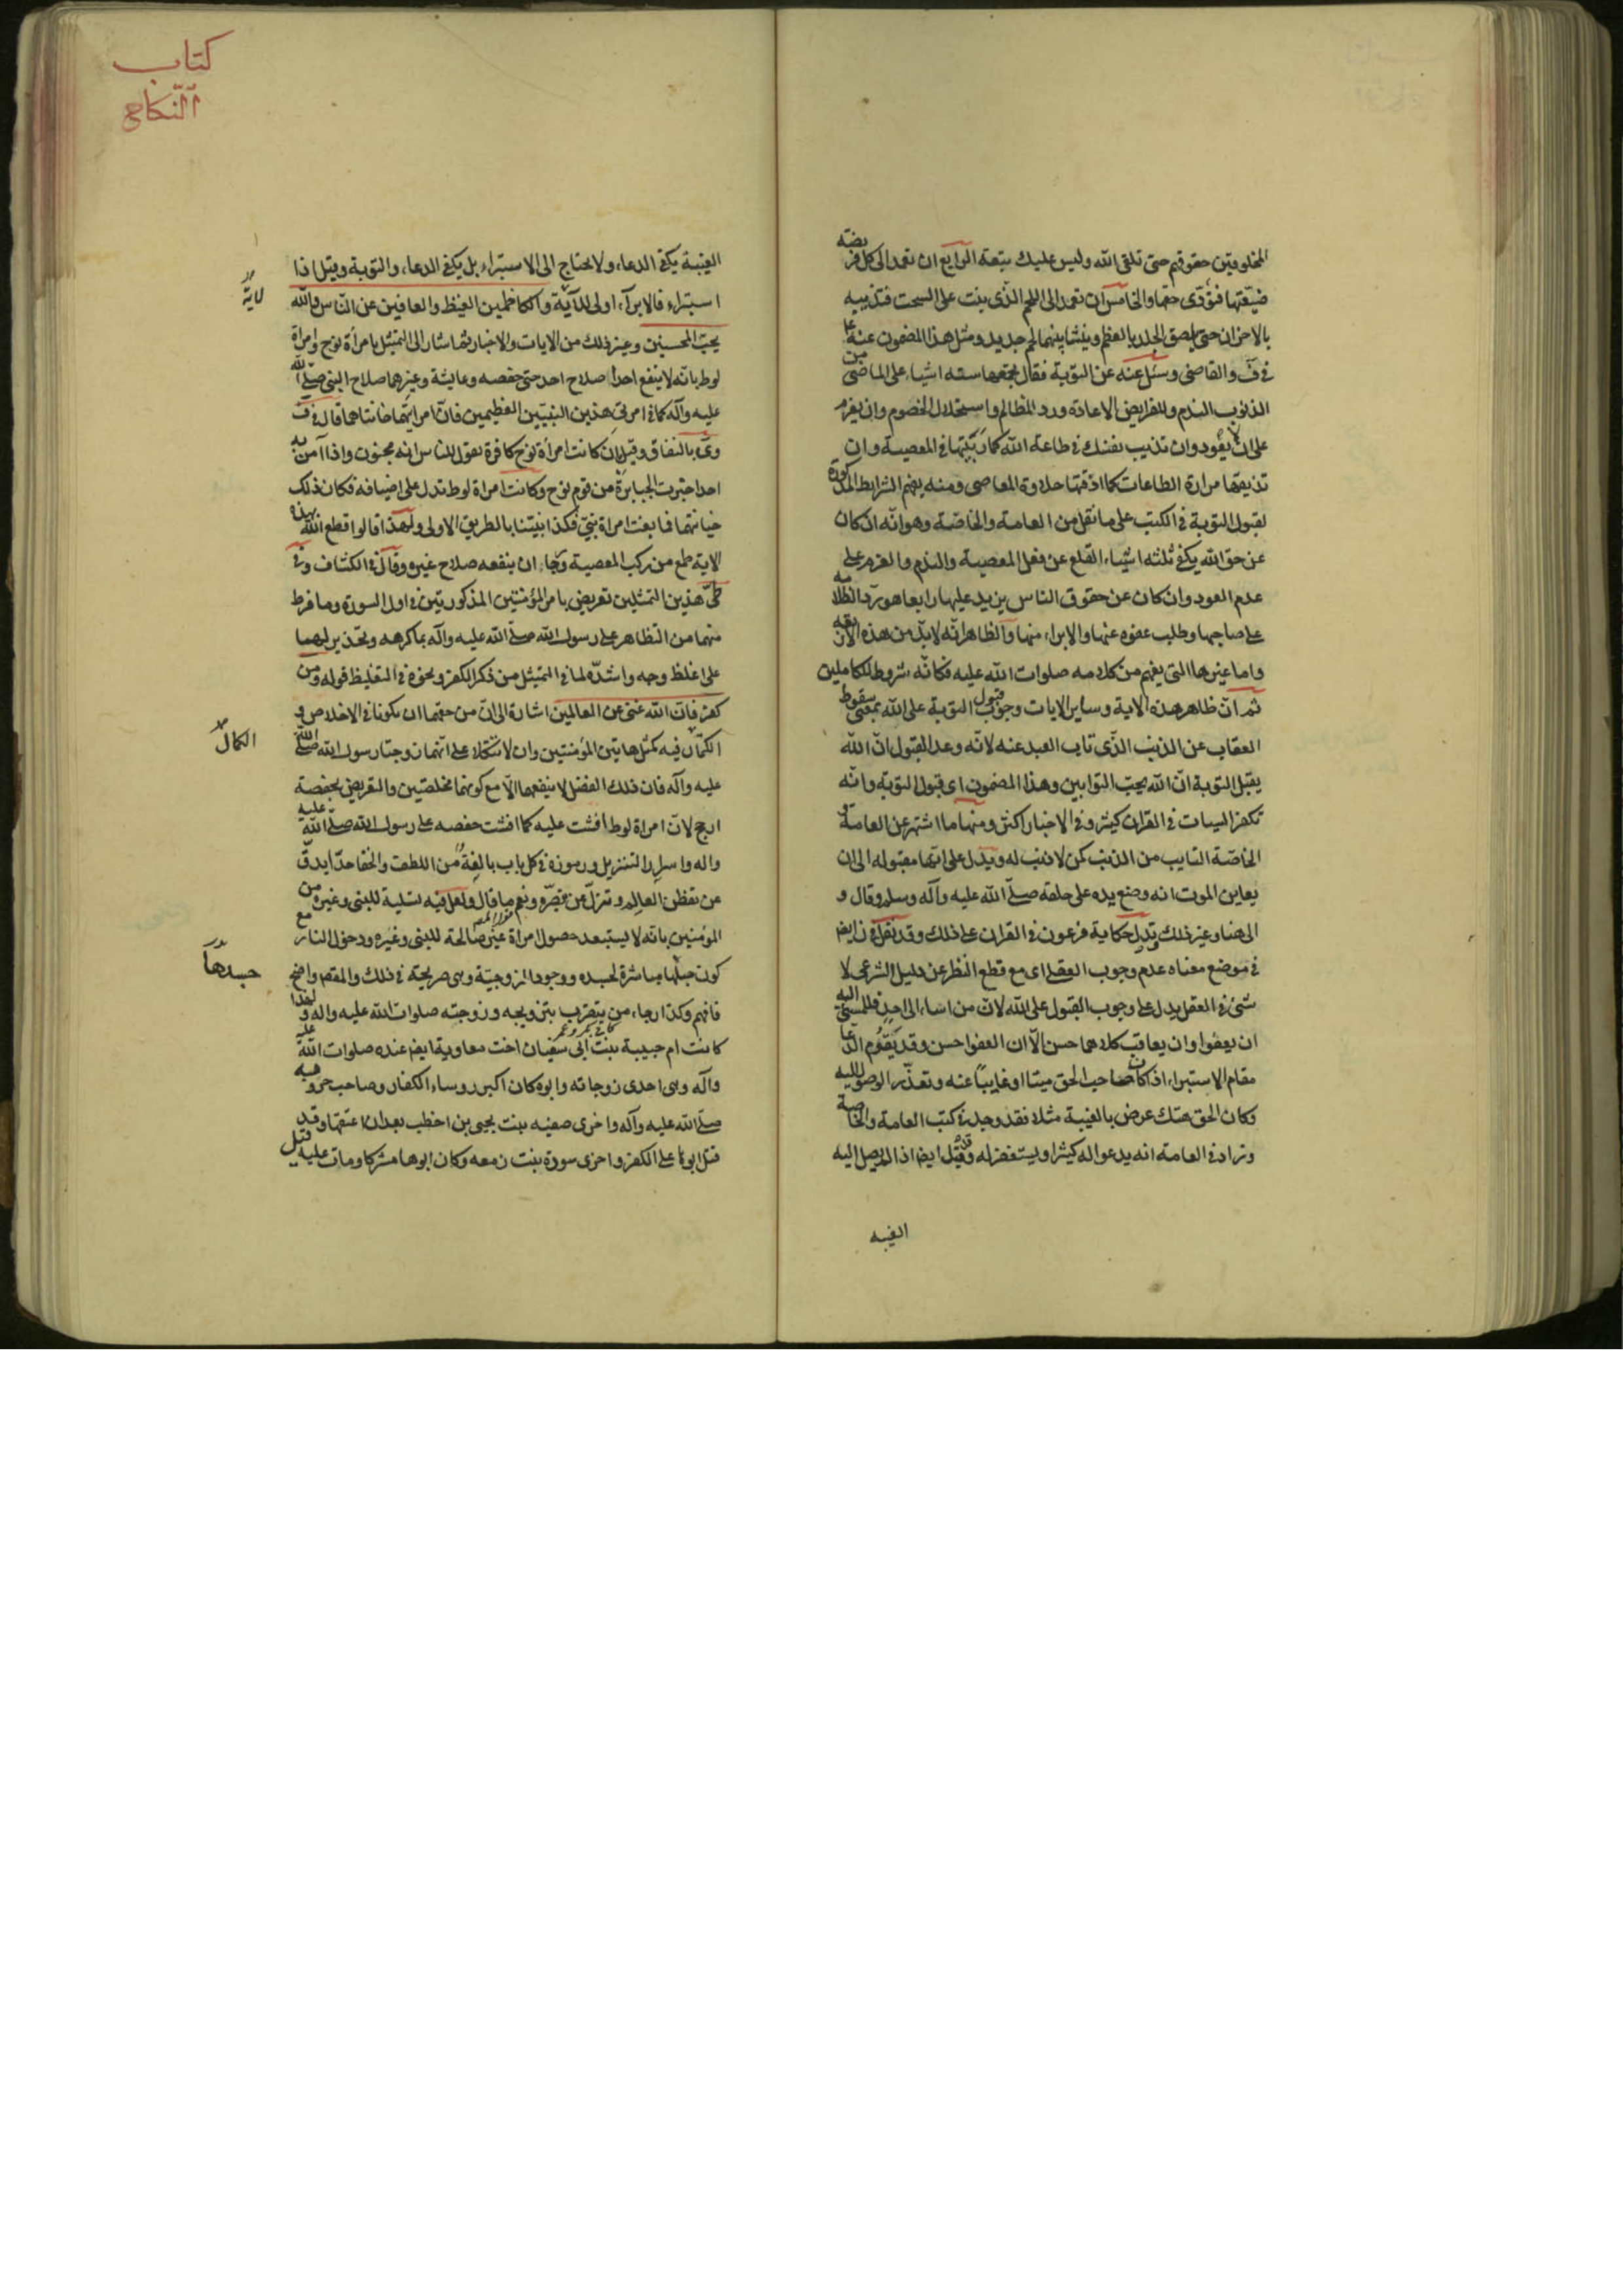 المخلوقين حقوقهم حتى تلقى الله وليس عليك تبعة الرابع ان تعمد الى كل فريضة
ضيعتها فتؤدى حقها والخامس ان تعمد الى اللحم الذى ينبت على السحت فتذيبه
بالاحزان حتى يلصق الجلد بالعظم وينشأ بينهما لحم جديد ومثل هذا المضمون عنه ع
فى ف والقاضى وسئل عنه عن التوبة فقال يجمعها ستة اشياء على الماضى من
الذنوب الندم وللفرايض الاعادة ورد المظالم واستحلال الخصوم وان يعزم
على ان لا يعود وان تذيب نفسك فى طاعة الله كما ربيتها فى المعصية وان
تذيقها مرارة الطاعات كما اذقتها حلاوة المعاصى ومنه يفهم الشرايط المذكورة
لقبول التوبة فى الكتب على ما نقل من العامة والخاصة وهو انه ان كان
عن حق الله يكفى ثلثه اشياء القلع عن فعل المعصية والندم والعزم على
عدم العود وان كان عن حقوق الناس يزيد عليها رابعا هو رد الظلامه
على صاحبها وطلب عفوه عنها والابراء منها والظاهر انه لابد من هذه الاربعه
واما غيرها التى يفهم من كلامه صلوات الله عليه فكانه شروط للكاملين
ثم ان ظاهر هذه الاية وساير الايات وجوب قبول التوبة على الله بمعنى سقوط
العقاب عن الذنب الذى تاب العبد عنه لانه وعد القبول ان الله
يقبل التوبة ان الله يحب التوابين وهذا المضمون اى قبول التوبة وانه
تكفر السيات فى القران كثير وفى الاخبار اكثر ومنها ما اشتهر عن العامة و
الخاصة التايب من الذنب كمن لا ذنب له ويدل على انها مقبوله الى ان
يعاين الموت انه وضع يده على حلقه صلى الله عليه وآله وسلم وقال و
الى هنا وغير ذلك وتدل حكاية فرعون فى القران على ذلك وقد نقل فى ن ايض
فى موضع معناه عدم وجوب العقلى اى مع قطع النظر عن دليل الشرعى لا
شئ فى العقل يدل على وجوب القبول على الله لان من اساء الى احد فللمسئ اليه
ان يعفوا وان يعاقب كلاهما حسن الا ان العفوا حسن وقد يقوم الدعا
مقام الاستبراء اذا كان صاحب الحق ميتا او غايبا عنه وتعذر الوصول اليه
وكان الحق هتك عرض بالغيبة مثلا فقد وجد فى كتب العامة والخاصة
وزاد فى العامة انه يدعو اله كثيرا ويستغفر له وقد قيل ايض اذا لم يصل اليه
الغيبه
كتاب
النكاح
الغيبة يكفى الدعاء ولا يحتاج الى الاستبراء بل يكفى الدعاء والتوبة وقيل اذا
استبراء فالابرآء اولى للاية والكاظمين الغيظ والعافين عن الناس والله
لاية
يحب المحسنين وغير ذلك من الايات والاخبار ثم اشار الى التمثيل بامرأة نوح وامراة
لوط بانه لا ينفع احدا صلاح احد حتى حفصه وعايشة وغيرهما صلاح النبى صلى الله
عليه وآله كما فى امرتى هذين النبيين العظيمين فان امراتيهما خانتاهما قال فى ف
وى بالنفاق وقيل ان كانت امرأة نوح كافرة تقول للناس انه مجنون واذا آمن به
احد اخبرت الجبابرة من قوم نوح وكانت امراة لوط تدل على اضيافه فكان ذلك
خيانتهما فما بغت امراة نبى فكذا نبيتنا بالطريق الاولى ولهذا قالوا قطع الله بهذه
الاية طمع من ركب المعصية وجاء ان ينفعه صلاح غيره وقال فى الكشاف وفى
طى هذين التمثيلين تعريض بامى المؤمنين المذكورتين فى اول السورة وما فرط
منهما من التظاهر على رسول الله صلى الله عليه وآله بما كرهه وتحذير لهما
على اغلظ وجه واشده لما فى التمثيل من ذكر الكفر ونحوه فى التغليظ قوله ومن
كفر فان الله غنى عن العالمين اشارة الى ان من حقهما ان تكونا فى الاخلاص و
الكمال فيه كمثل هاتين المؤمنتين وان لا تتكلا على انهما زوجتا رسول الله صلى الله
الكمال
عليه وآله فان ذلك الفضل لا ينفعهما الا مع كونهما مخلصتين والتعريض بحفصة
ارجح لان امراة لوط افشت عليه كما افشت حفصه على رسول الله صلى الله عليه
واله واسرار التنزيل ورموزه فى كل باب بالغة من اللطف والخفا حدا يدق
عن تفطن العالم وتزل عن تبصره ونعم ما قال ولعل فيه تسلية للنبى وغيره من
المؤمنين بانه لا يستبعد حصول امراة غير صالحة للنبى وغيره ودخول النار مع
كون جسدها مباشرة لجسده ووجود الزوجية وهى صريحة فى ذلك والمقصر واضح
جسدها
فافهم وكذا رجاء من يتقرب بتزويجه وزوجته صلوات الله عليه واله ولهذا
كانت ام حبيبة بنت ابى سفيان اخت معاوية ايض عنده صلوات الله عليه
وآله وهى احدى زوجاته وابوه كان اكبر روساء الكفار وصاحب حروبه
صلى الله عليه وآله واخرى صفيه بنت يحيى بن اخطب بعد ان اعتقها وقد
قتل ابوها على الكفر واخرى سودة بنت زمعه وكان ابوها مشركا ومات عليه قيل